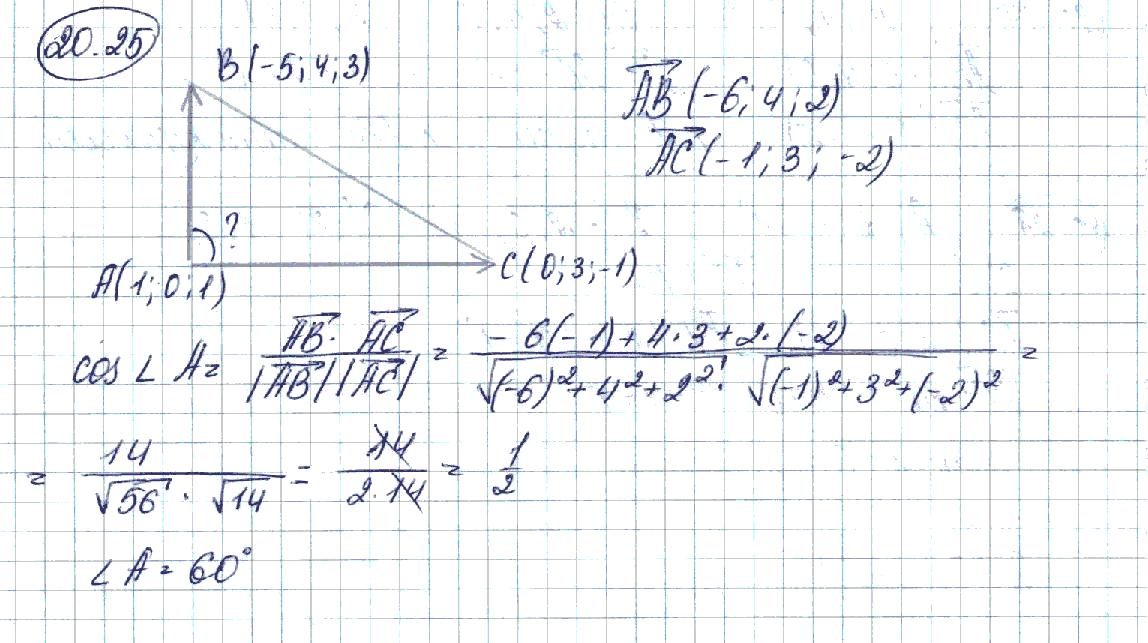 20.25
B(-5;4;3)
AB(-6;4;2)
AC(-1;3;-2)
?
A(1;0;1)
C(0;3;-1)
cos∠A = AB·AC / |AB||AC| = -6(-1)+4·3+2·(-2) / √(-6)²+4²+2² · √(-1)²+3²+(-2)² =
= 14 / √56 · √14 = 14 / 2·14 = 1/2
∠A = 60°